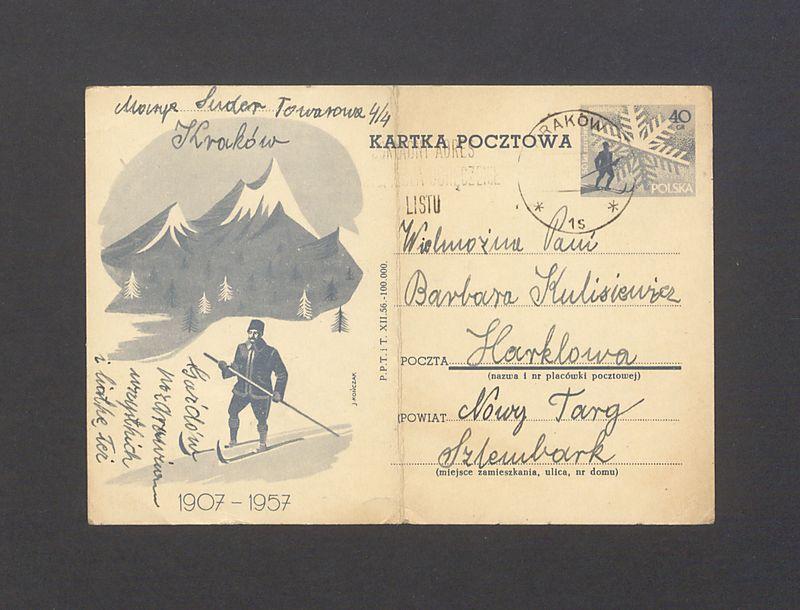 Marya Suder Towarowa 4/4
Kraków
KARTKA POCZTOWA
KRAKÓW
1s
40
GR
POLSKA
ADRES
LISTU
Wielmożna Pani
Barbara Kulisiewicz
POCZTA Harklowa
(nazwa i nr placówki pocztowej)
POWIAT Nowy Targ
Szlembark
(miejsce zamieszkania, ulica, nr domu)
P.P.T. i T. XII.56.-100.000.
J. KOŃCZAK
wszystkich
i
też
1907 – 1957